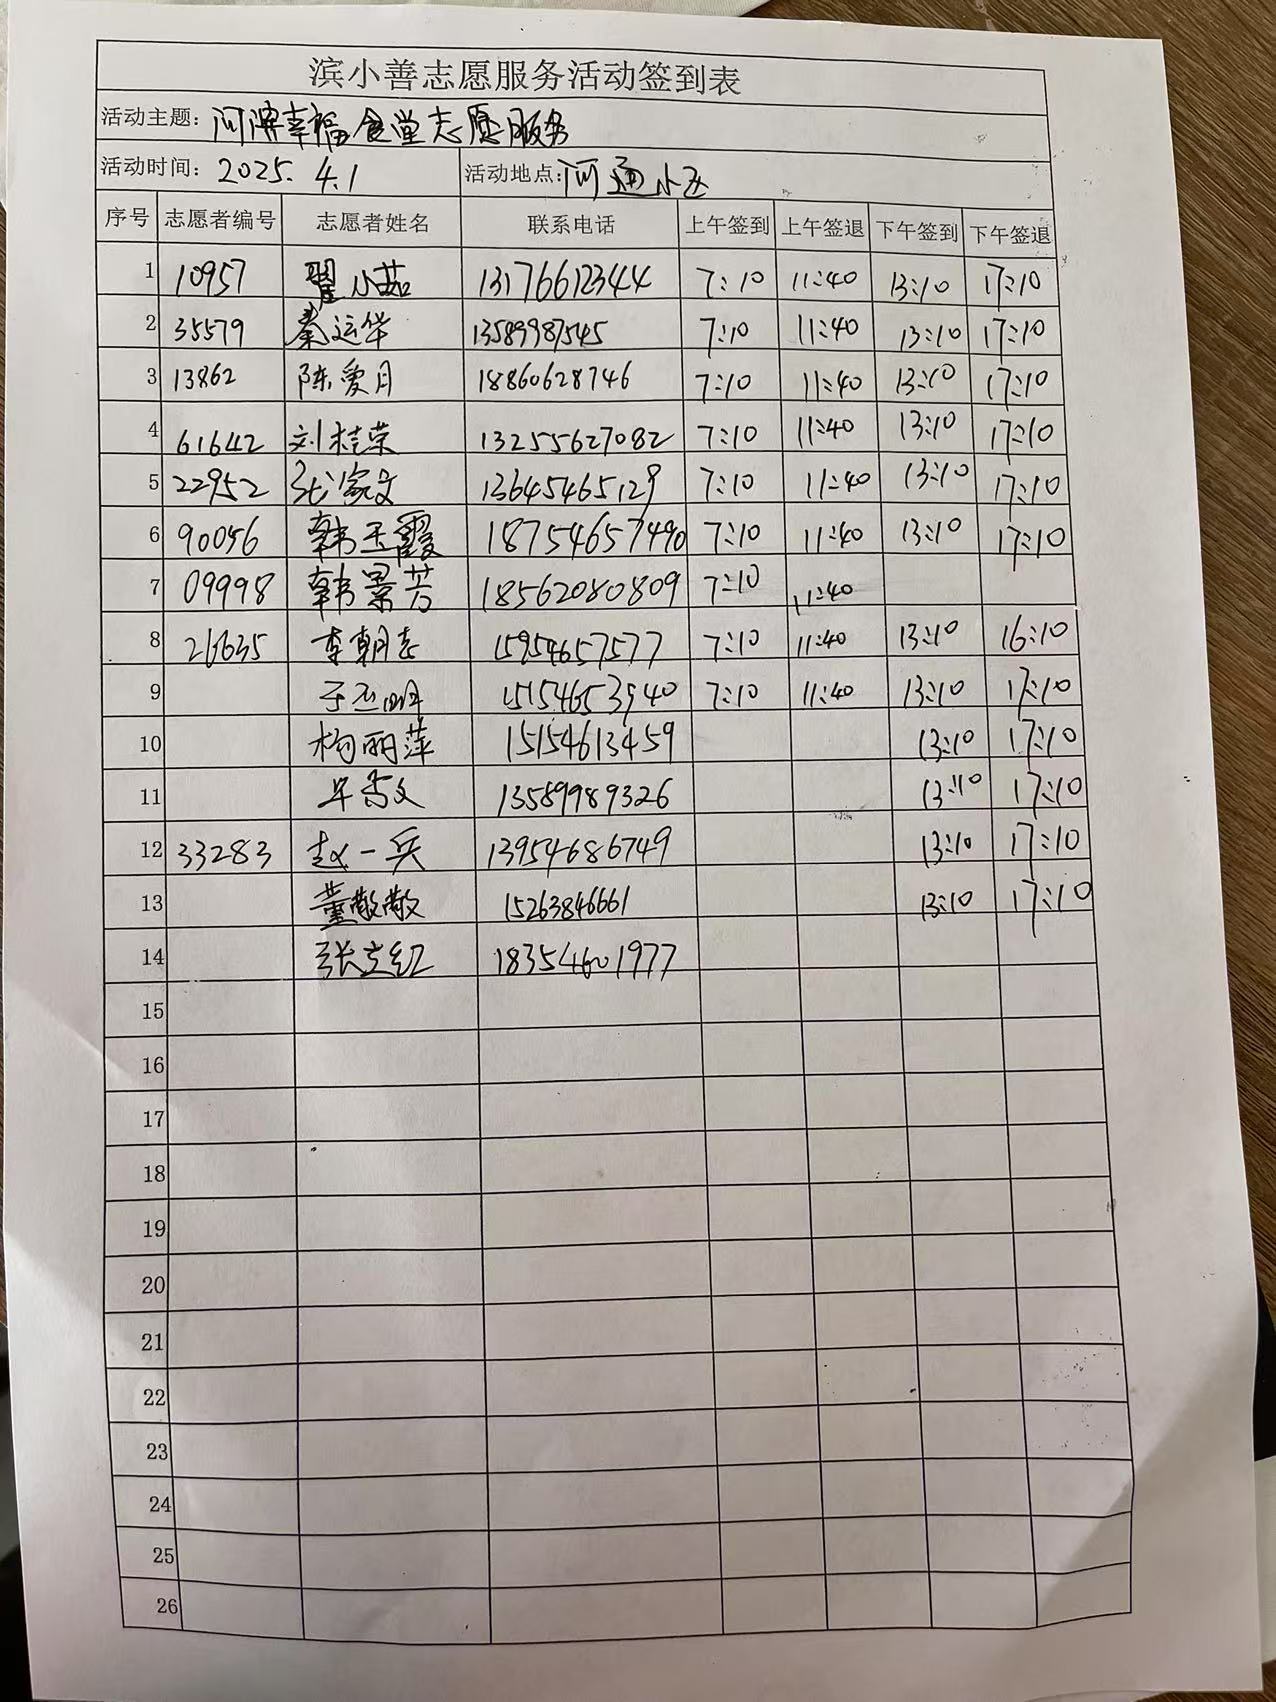 滨小善志愿服务活动签到表
活动主题：河滨幸福食堂志愿服务
活动时间：2025.4.1 活动地点：河通小区
序号 志愿者编号 志愿者姓名 联系电话 上午签到 上午签退 下午签到 下午签退
1 10957 翟小茹 13176612344 7:10 11:40 13:10 17:10
2 35579 秦运华 13589987545 7:10 11:40 13:10 17:10
3 13862 陈爱月 18860628746 7:10 11:40 13:10 17:10
4 61642 刘桂荣 13255627082 7:10 11:40 13:10 17:10
5 22952 张家文 13645465129 7:10 11:40 13:10 17:10
6 90056 韩玉霞 18754657490 7:10 11:40 13:10 17:10
7 09998 韩景芳 18562080809 7:10 11:40
8 李朝志 15954657577 7:10 11:40 13:10 16:10
9 15154653940 7:10 11:40 13:10 17:10
10 杨丽萍 15154613459 13:10 17:10
11 13589989326 13:10 17:10
12 33283 赵一兵 13954686749 13:10 17:10
13 董敬敬 15263846661 13:10 17:10
14 张立红 18354601977
15
16
17
18
19
20
21
22
23
24
25
26